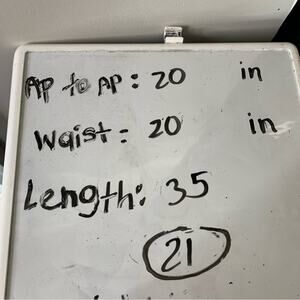 AP to AP: 20 in
Waist: 20 in
Length: 35
21